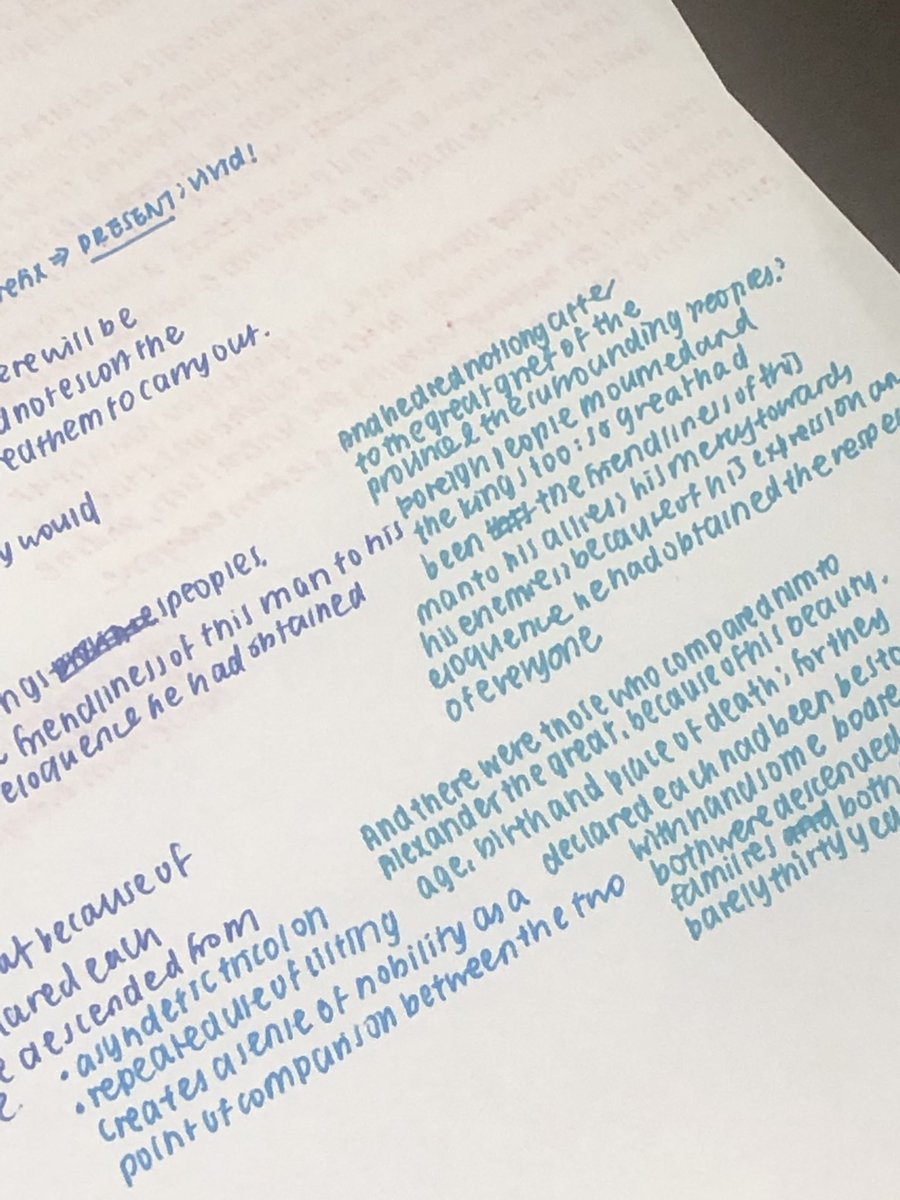 refix ⇒ PRESENT; vivid!
ere will be
d notes on the
ed them to carry out.
y would
ngs peoples,
friendliness of this man to his
eloquence he had obtained
And he died not long after
to the great grief of the
province & the surrounding peoples.
Foreign people mourned and
the kings too: so great had
been the friendliness of this
man to his allies, his mercy towards
his enemies; because of his expression an
eloquence he had obtained the respe
of everyone
And there were those who compared him to
Alexander the great, because of his beauty,
age, birth and place of death; for they
declared each had been besto
with handsome
both were descended
families both
barely thirty yea
at because of
lared each
e descended from
e.
• asyndetic tricolon
• repeated use of listing
creates a sense of nobility as a
point of comparison between the two